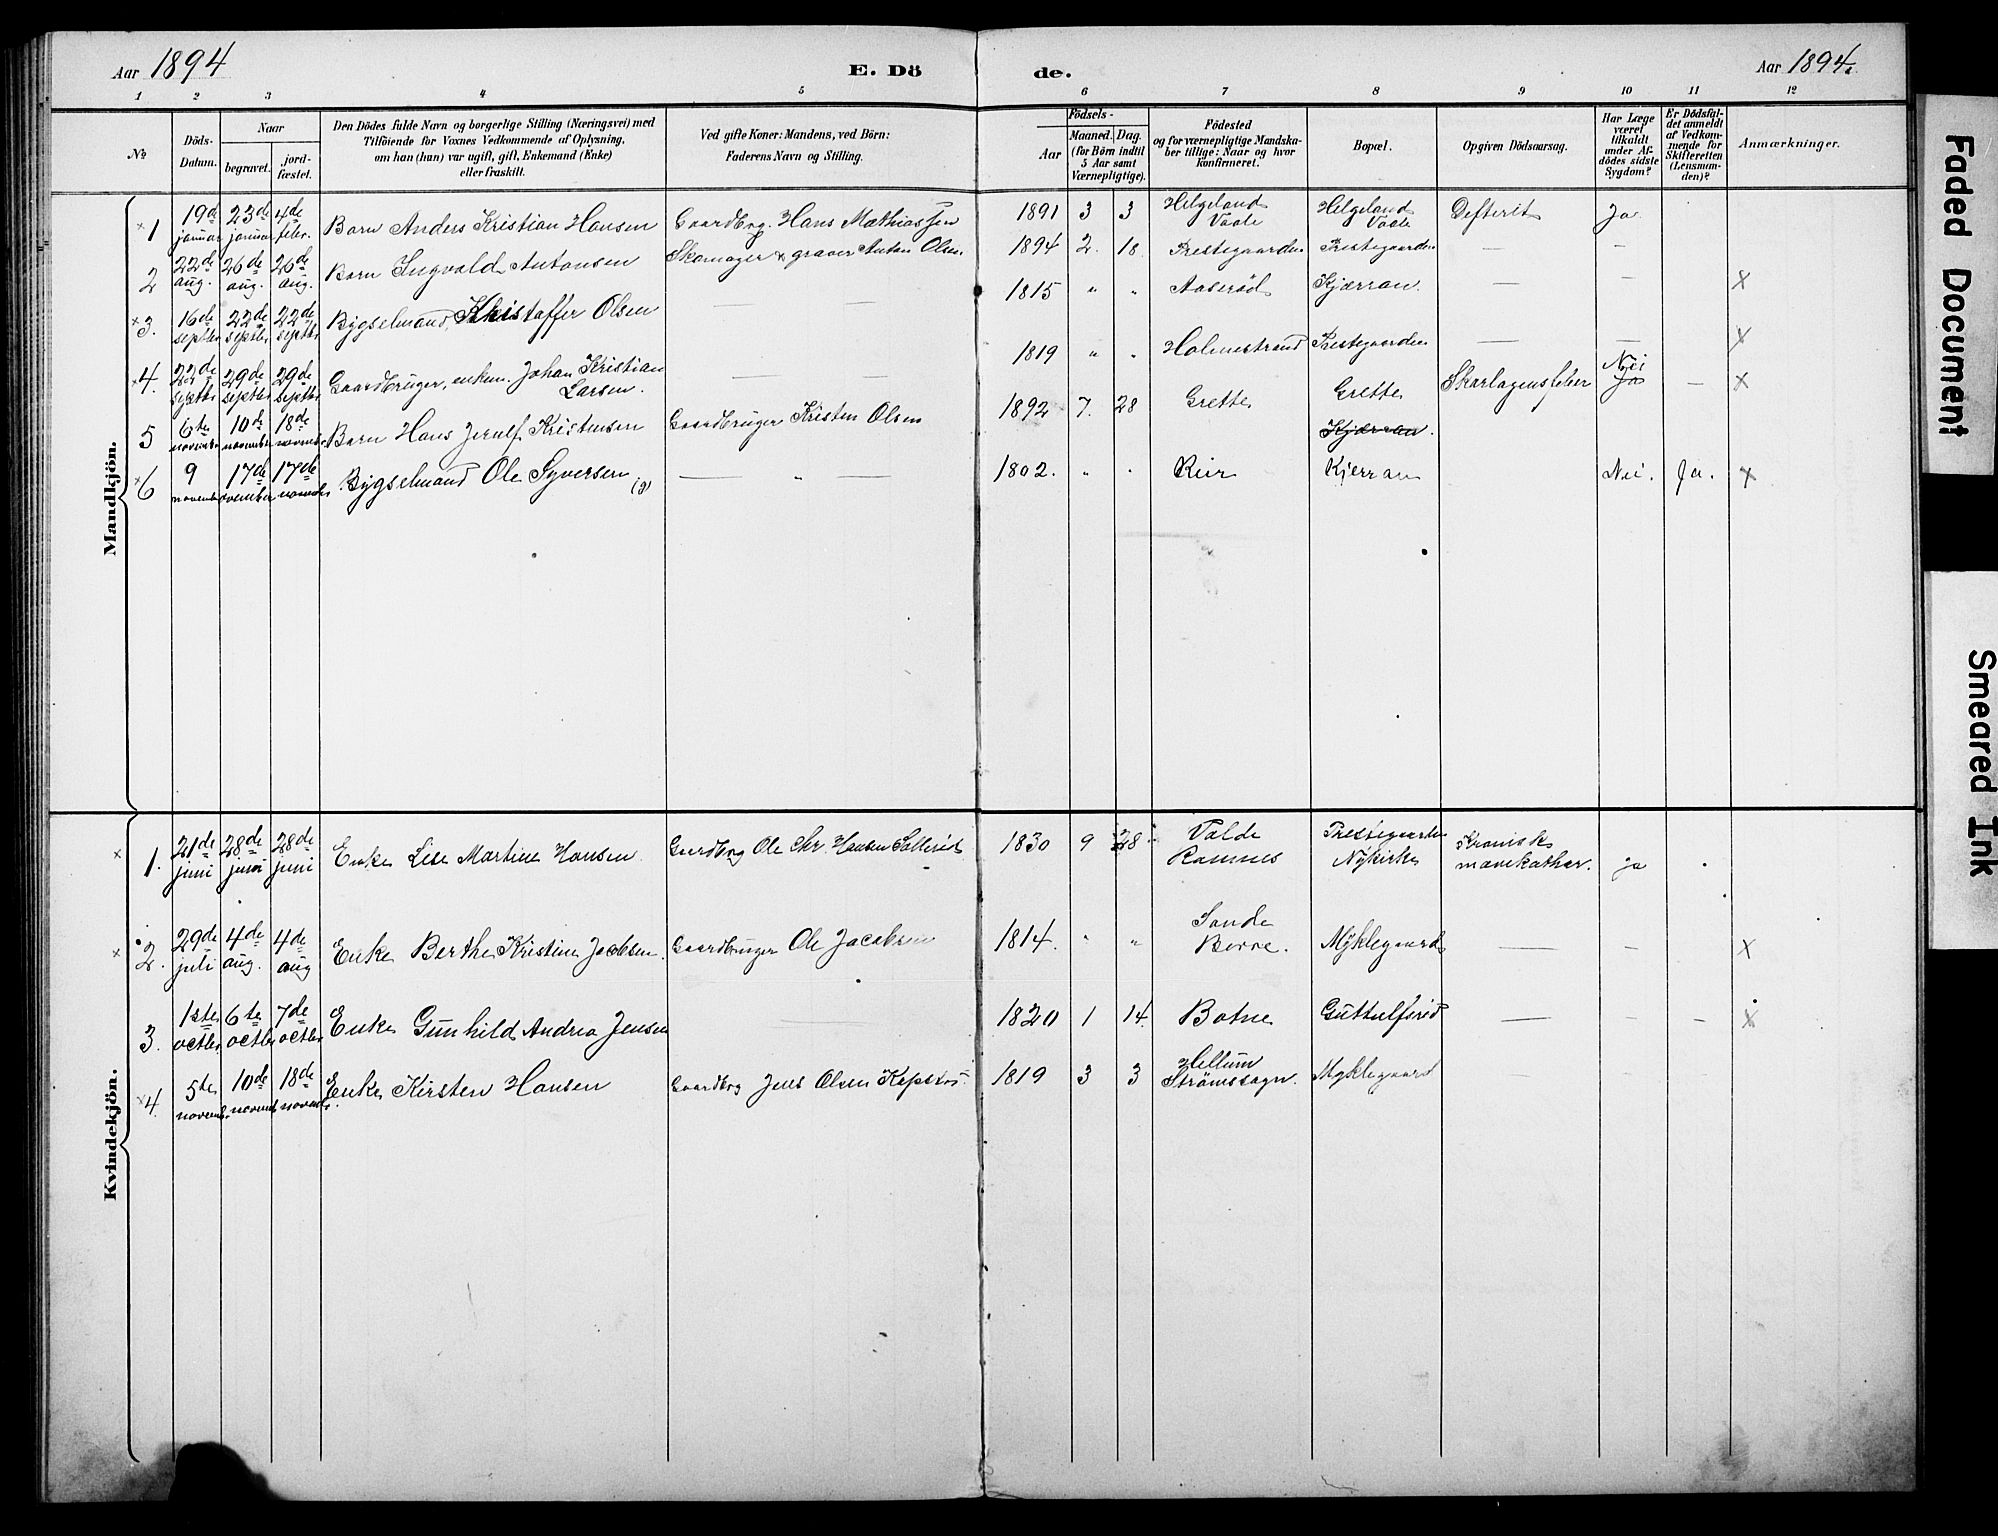 Aar 1894
E. Dö
de.
Aar 1894.
1 2 3 4 5 6 7 8 9 10 11 12
№
Döds-Datum.
Naar
begravet.
jord-fæstet.
Den Dödes fulde Navn og borgerlige Stilling (Næringsvei) med
Tilföiende for Voxnes Vedkommende af Oplysning,
om han (hun) var ugift, gift, Enkemand (Enke)
eller fraskilt.
Ved gifte Koner: Mandens, ved Börn:
Faderens Navn og Stilling.
Födsels-
Aar
Maaned. Dag.
(for Börn indtil
5 Aar samt
Værnepligtige).
Födested
og for værnepligtige Mandska-
ber tillige: Naar og hvor
konfirmeret.
Bopæl.
Opgiven Dödsaarsag.
Har Læge
været
tilkaldt
under Af-
dödes sidste
Sygdom?
Er Dödsfal-
det anmeldt
af Vedkom-
mende for
Skifteretten
(Lensman-
den)?
Anmærkninger.
Mandkjön.
×1 19de januar 23de januar 4de febr. Barn Anders Kristian Hansen Gaardbrg. Hans Mathiassen 1891 3 3 Helgeland Vaale Helgeland Vaale Defterit Ja
2 22de aug. 26de aug. 26de aug. Barn Ingvald Antonsen Skomager & graver Anton Olsen 1894 2. 18. Prestegaarden Prestegaarden — —
×3. 16de septbr 22de septbr 22de septbr Bygselmand, Khistaffer Olsen — — 1815 " " Aaserød Kjærran. — — ×
×4. 22de septbr 29de septbr 29de septbr Gaardbruger, enkem. Johan Kristian Larsen. — — 1819 " " Holmestrand Prestegaarden — — ×
5 6te novembr 10de novembr 18de novembr Barn Hans Jerulf Kristensen Gaardbruger Kristen Olsen 1892 7. 28 Grette Grette Kjærran. Skarlagensfeber Nei Ja — ×
×6 9 novembr 17de november 17de novembr Bygselmand Ole Syversen (g) — " — 1802. " " Reir Kjerran Nei. Ja. ×
Kvindekjön.
× 1. 21de juni 28de juni 28de juni Enke Lise Martine Hansen Gaardbrg Ole Chr. Hansen 1830 9 28 Valde Ramnes Prestegaarden Nykirke Kronisk mavekathar. ja
× 2. 29de juli 4de aug. 4de aug Enke Berthe Kristine Jacobsen. Gaardbruger Ole Jacobsen 1814. " " Sande Borre. Myklegaard — — ×
3. 1ste octbr 6te octbr 7de octbr Enke Gunhild Andrea Jensen — 1820 1 14. Botne — — — ×
×4. 5te novembr. 10de novembr 18de novembr. Enke Kirsten Hansen Gaardbrg Jens Olsen 1819 3 3 Hillum Strömssogn. Myklegaard — — —
Faded Document
Smeared Ink